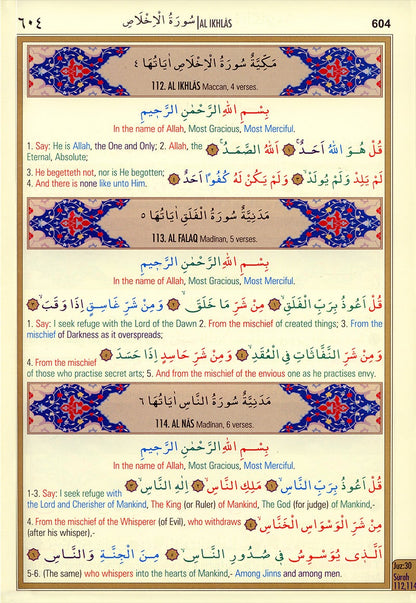 ٦٠٤ سُورَةُ الْاِخْلَاصِ | AL IKHLÂS 604
مَكِّيَّةٌ سُورَةُ الْاِخْلَاصِ اٰيَاتُهَا ٤
112. AL IKHLÂS Maccan, 4 verses.
بِسْمِ اللّٰهِ الرَّحْمٰنِ الرَّحِيمِ
In the name of Allah, Most Gracious, Most Merciful.
قُلْ هُوَ اللّٰهُ اَحَدٌۚ ﴿١﴾ اَللّٰهُ الصَّمَدُۚ ﴿٢﴾
1. Say: He is Allah, the One and Only; 2. Allah, the
Eternal, Absolute;
لَمْ يَلِدْ وَلَمْ يُولَدْۙ ﴿٣﴾ وَلَمْ يَكُنْ لَهُ كُفُوًا اَحَدٌ ﴿٤﴾
3. He begetteth not, nor is He begotten;
4. And there is none like unto Him.
مَدَنِيَّةٌ سُورَةُ الْفَلَقِ اٰيَاتُهَا ٥
113. AL FALAQ Madînan, 5 verses.
بِسْمِ اللّٰهِ الرَّحْمٰنِ الرَّحِيمِ
In the name of Allah, Most Gracious, Most Merciful.
قُلْ اَعُوذُ بِرَبِّ الْفَلَقِۙ ﴿١﴾ مِنْ شَرِّ مَا خَلَقَۙ ﴿٢﴾ وَمِنْ شَرِّ غَاسِقٍ اِذَا وَقَبَۙ ﴿٣﴾
1. Say: I seek refuge with the Lord of the Dawn 2. From the mischief of created things; 3. From the
mischief of Darkness as it overspreads;
وَمِنْ شَرِّ النَّفَّاثَاتِ فِي الْعُقَدِۙ ﴿٤﴾ وَمِنْ شَرِّ حَاسِدٍ اِذَا حَسَدَ ﴿٥﴾
4. From the mischief
of those who practise secret arts; 5. And from the mischief of the envious one as he practises envy.
مَدَنِيَّةٌ سُورَةُ النَّاسِ اٰيَاتُهَا ٦
114. AL NÂS Madînan, 6 verses.
بِسْمِ اللّٰهِ الرَّحْمٰنِ الرَّحِيمِ
In the name of Allah, Most Gracious, Most Merciful.
قُلْ اَعُوذُ بِرَبِّ النَّاسِۙ ﴿١﴾ مَلِكِ النَّاسِۙ ﴿٢﴾ اِلٰهِ النَّاسِۙ ﴿٣﴾
1-3. Say: I seek refuge with
the Lord and Cherisher of Mankind, The King (or Ruler) of Mankind, The God (for judge) of Mankind,-
مِنْ شَرِّ الْوَسْوَاسِ الْخَنَّاسِۙ ﴿٤﴾
4. From the mischief of the Whisperer (of Evil), who withdraws
(after his whisper),-
اَلَّذِي يُوَسْوِسُ فِي صُدُورِ النَّاسِۙ ﴿٥﴾ مِنَ الْجِنَّةِ وَالنَّاسِ ﴿٦﴾
5-6. (The same) who whispers into the hearts of Mankind,- Among Jinns and among men.
Juz:30
Sûrah
112,114